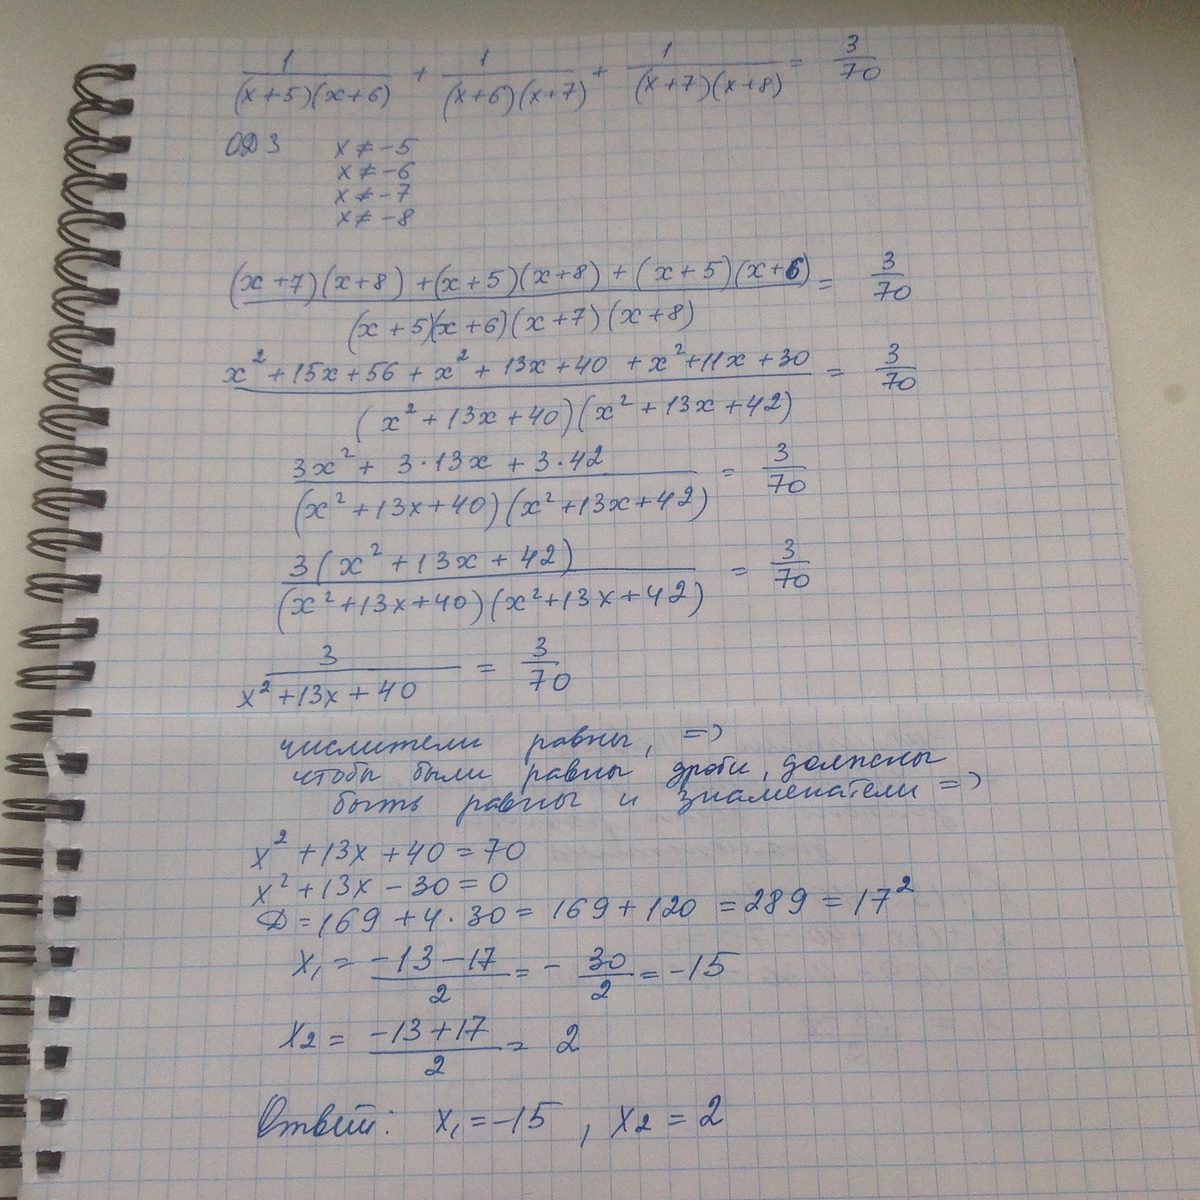 1/((x+5)(x+6)) + 1/((x+6)(x+7)) + 1/((x+7)(x+8)) = 3/70
ОДЗ x ≠ -5
x ≠ -6
x ≠ -7
x ≠ -8
((x+7)(x+8) + (x+5)(x+8) + (x+5)(x+6))/((x+5)(x+6)(x+7)(x+8)) = 3/70
(x² + 15x + 56 + x² + 13x + 40 + x² + 11x + 30)/((x² + 13x + 40)(x² + 13x + 42)) = 3/70
(3x² + 3·13x + 3·42)/((x² + 13x + 40)(x² + 13x + 42)) = 3/70
3(x² + 13x + 42)/((x² + 13x + 40)(x² + 13x + 42)) = 3/70
3/(x² + 13x + 40) = 3/70
числители равны, =>
чтобы были равны дроби, должны
быть равны и знаменатели =>
x² + 13x + 40 = 70
x² + 13x - 30 = 0
D = 169 + 4·30 = 169 + 120 = 289 = 17²
x₁ = (-13 - 17)/2 = - 30/2 = -15
x₂ = (-13 + 17)/2 = 2
Ответ: x₁ = -15, x₂ = 2